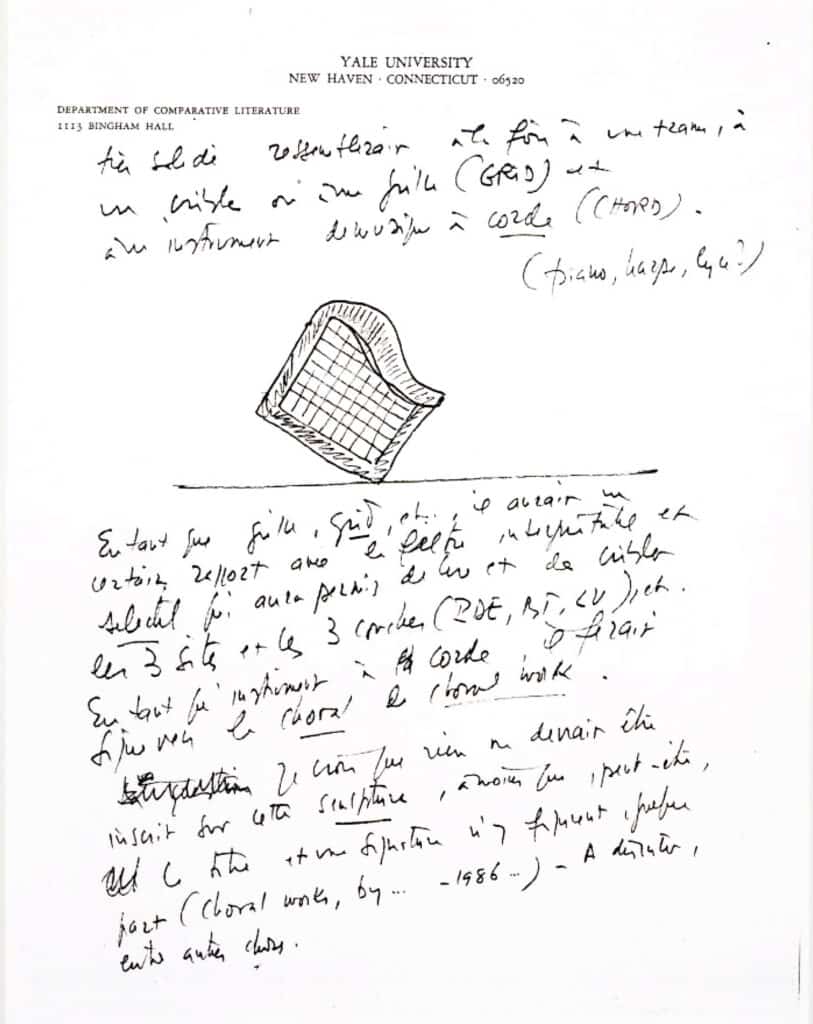 YALE UNIVERSITY
NEW HAVEN · CONNECTICUT · 06520
DEPARTMENT OF COMPARATIVE LITERATURE
1113 BINGHAM HALL
très solide ressemblerait à la fois à une trame, à
un crible ou à une grille (GRID) et
à un instrument de musique à corde (CHORD).
(piano, harpe, lyre?)
En tant que grille, grid, etc., il aurait un
certain rapport avec le filtre interprétatif et
sélectif qui aura permis de lire et de cribler
les 3 sites et les 3 couches (PDE, BT, LV), etc.
En tant qu'instrument à corde, il ferait
signe vers le choral de choral work.
Je crois que rien ne devrait être
inscrit sur cette sculpture, à moins que, peut-être,
le titre et une signature n'y figurent, quelque
part (Choral work, by... -1986...) - A discuter,
entre autres choses.